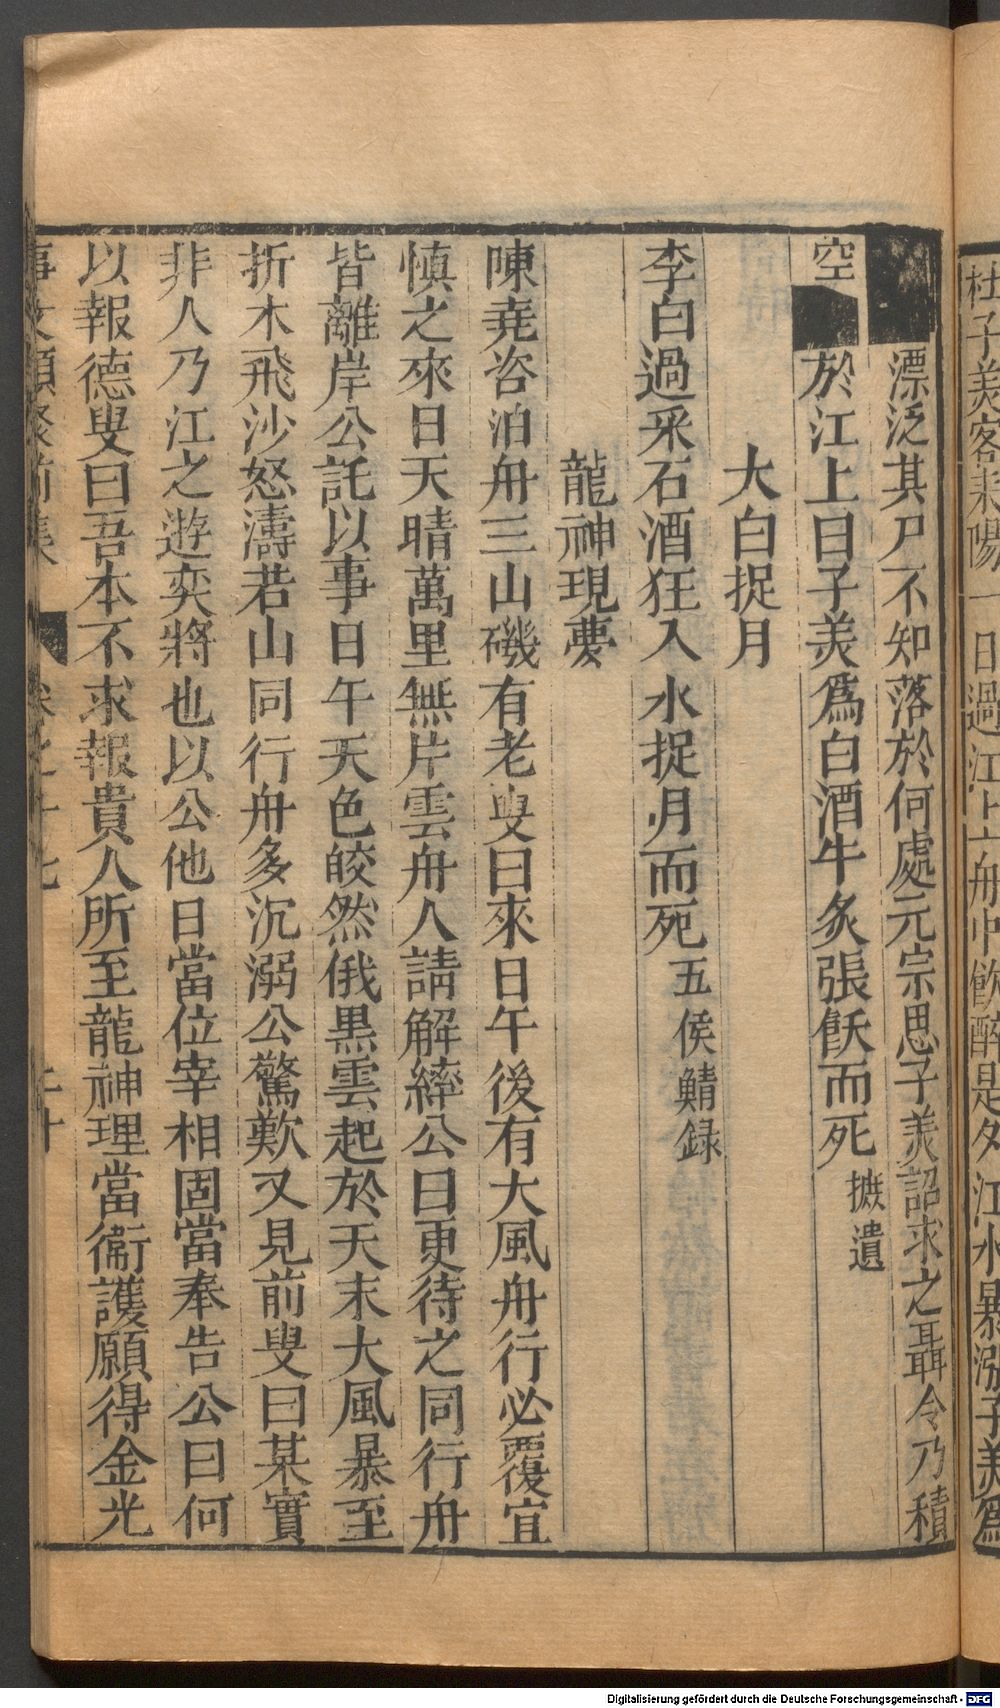 杜子美客耒陽一日過江上舟中飲醉是夕江水暴漲子美爲
漂泛其尸不知落於何處元宗思子美詔求之聶令乃積
空
於江上曰子美爲白酒牛炙張飫而死 摭遺
大白捉月
李白過采石酒狂入水捉月而死 五侯鯖録
龍神現夢
陳堯咨泊舟三山磯有老叟曰來日午後有大風舟行必覆宜
慎之來日天晴萬里無片雲舟人請解繂公曰更待之同行舟
皆離岸公託以事日午天色皎然俄黒雲起於天末大風暴至
折木飛沙怒濤若山同行舟多沉溺公驚歎又見前叟曰某實
非人乃江之遊奕將也以公他日當位宰相固當奉告公曰何
以報德叟曰吾本不求報貴人所至龍神理當衞護願得金光
事文類聚前集 卷之十七
Digitalisierung gefördert durch die Deutsche Forschungsgemeinschaft - DFG